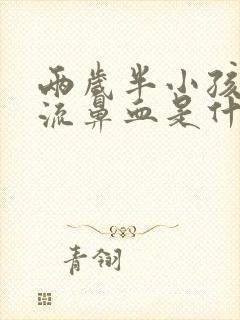 兩歲半小孩
流鼻血是什
青翎